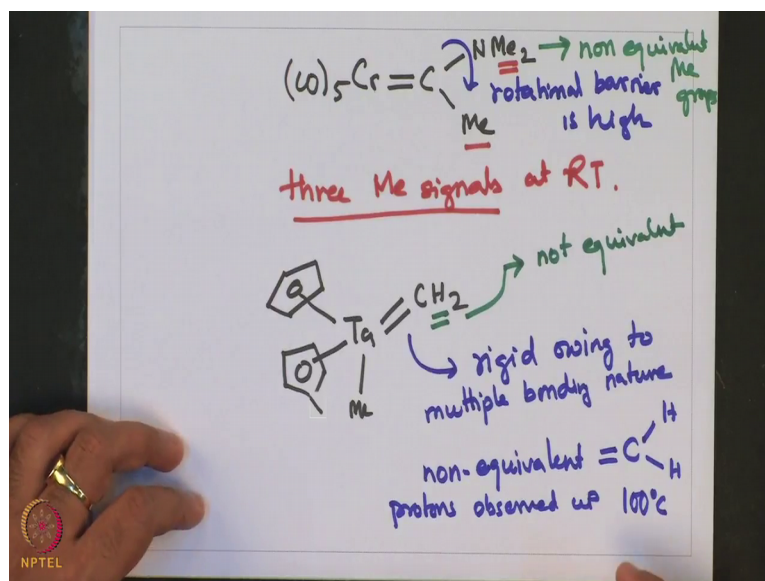 (CO)5Cr=C
NMe2 → non equivalent
Me
groups
rotational barrier
is high
Me
three Me signals at RT.
→ not equivalent
CH2
Ta
Me
rigid owing to
multiple bonding nature
non-equivalent =C
H
H
protons observed up 100°C
NPTEL